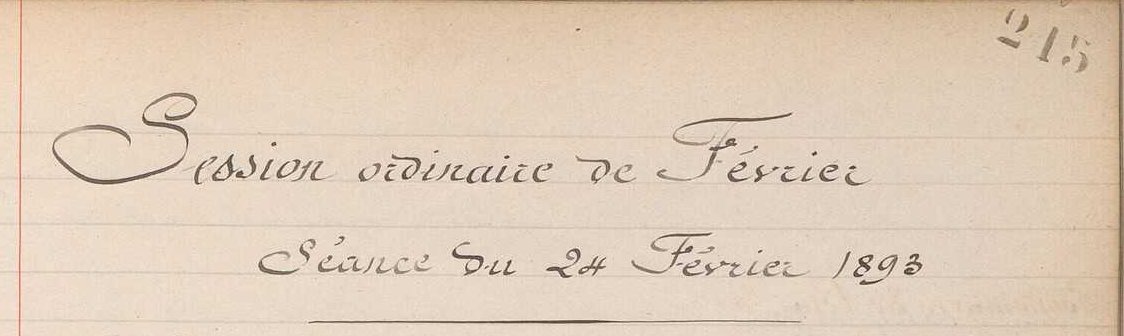 215
Session ordinaire de Février
Séance du 24 Février 1893